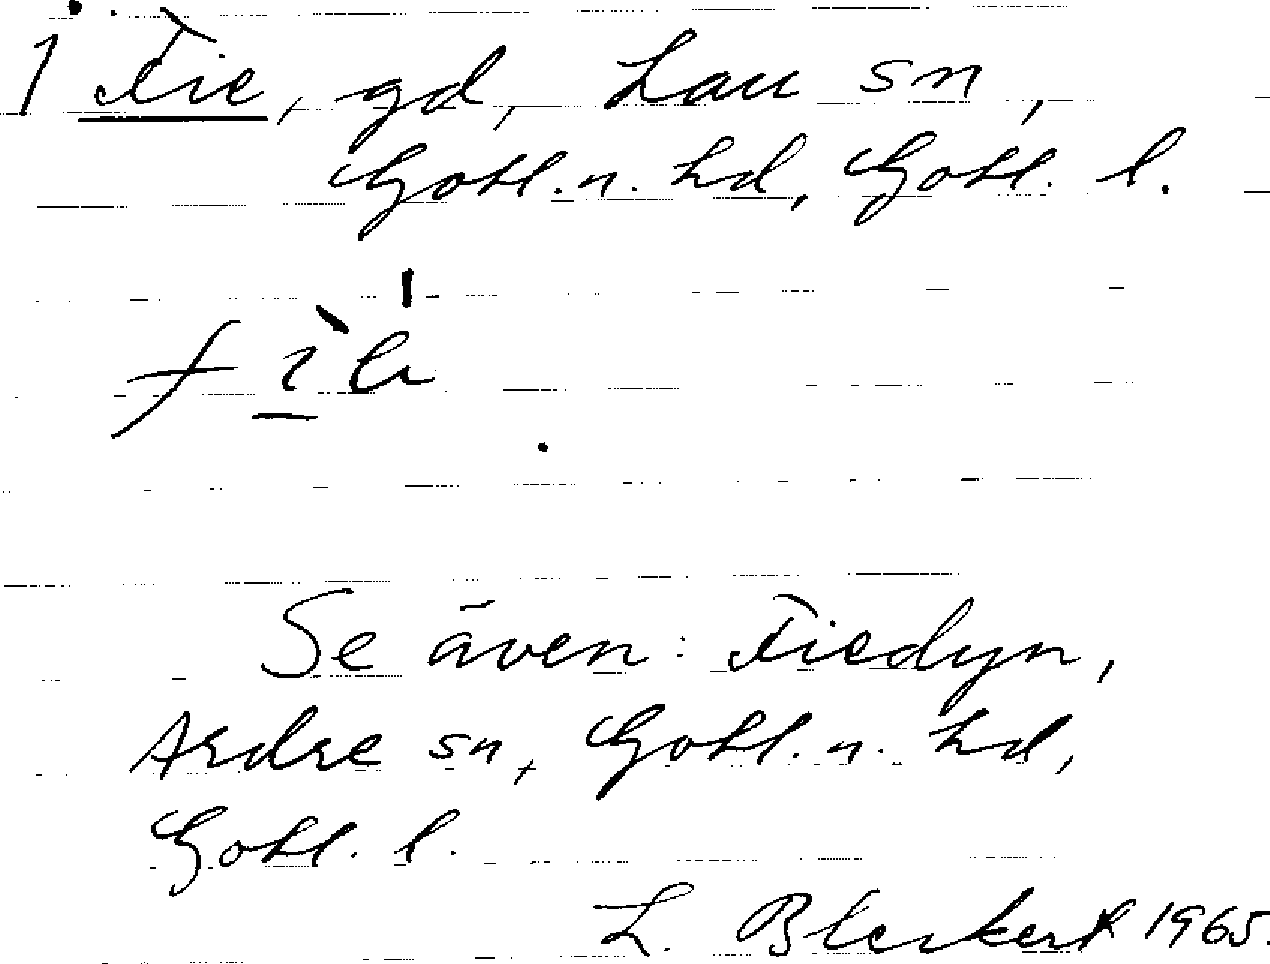 1 Fie, gd, Lau sn,
Gotl. n. hd, Gotl. l.
Se även: Fiedyn,
Ardre sn, Gotl. n. hd,
Gotl. l.
L. Bleckert 1965.